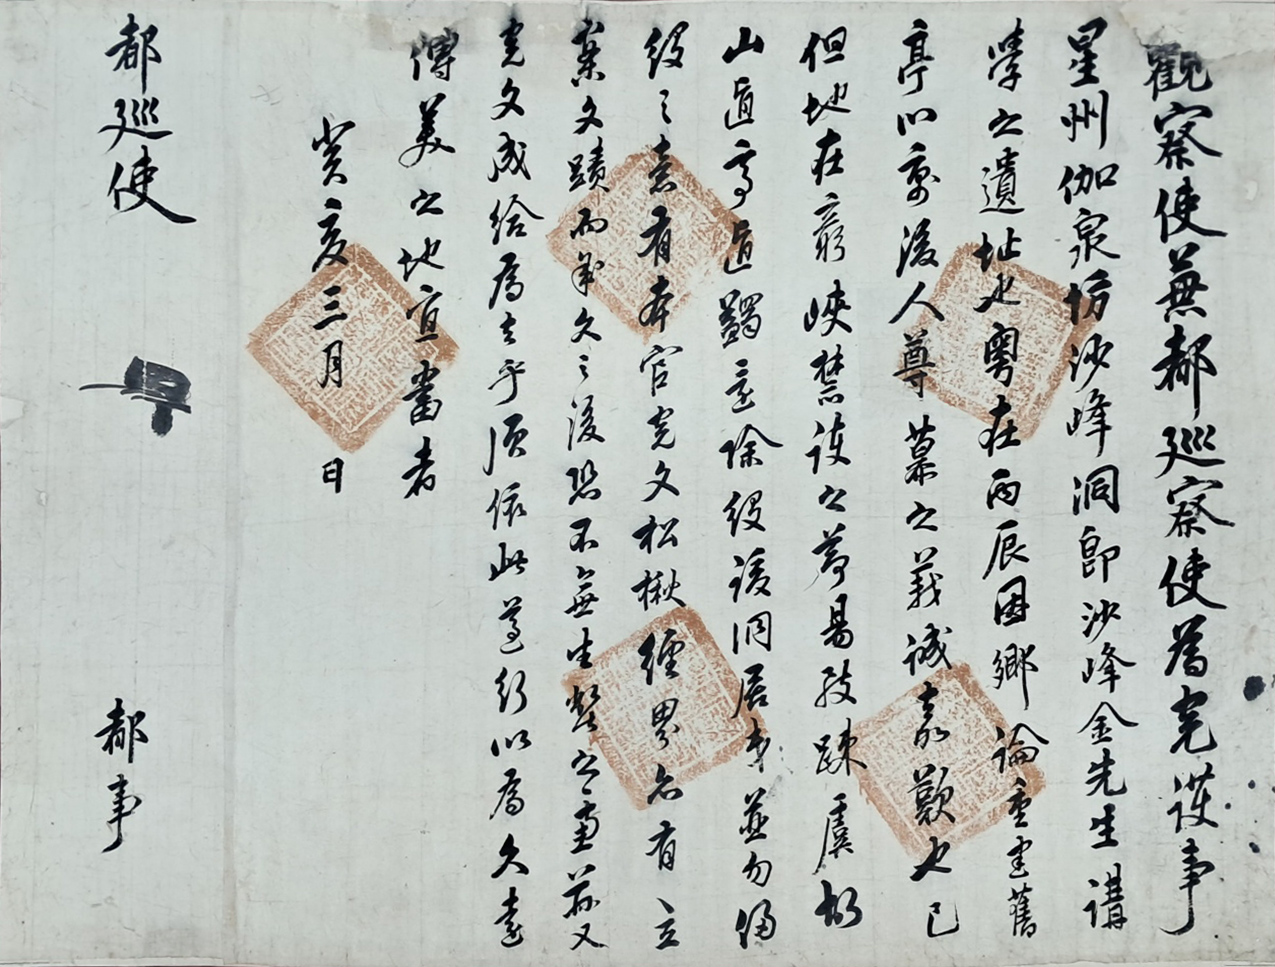 觀察使兼都巡察使爲完護事
星州伽泉坊沙峰洞卽沙峰金先生講
學之遺址也粤在丙辰因鄕論重建舊
亭以寓後人尊慕之義誠嘉歎也已
但地在窮峽禁護之節易致踈虞故
山直亭直蠲還除役後洞居書並勿侵
役之意有本官完文松楸經界亦有立
案文蹟而年久之後恐不無生弊之慮玆又
完文成給爲去乎須依此遵行以爲久遠
傳美之地宜當者
癸亥三月 日
都巡使
都事